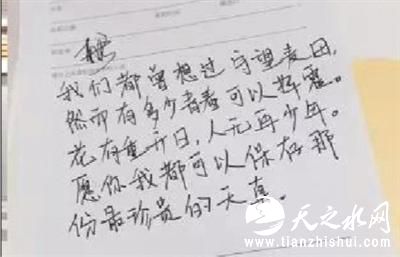 我们都曾想过守望麦田,
然而有多少青春可以挥霍。
花有重开日,人无再少年。
愿你我都可以保存那
份最珍贵的天真。
天之水网
www.tianzhishui.com